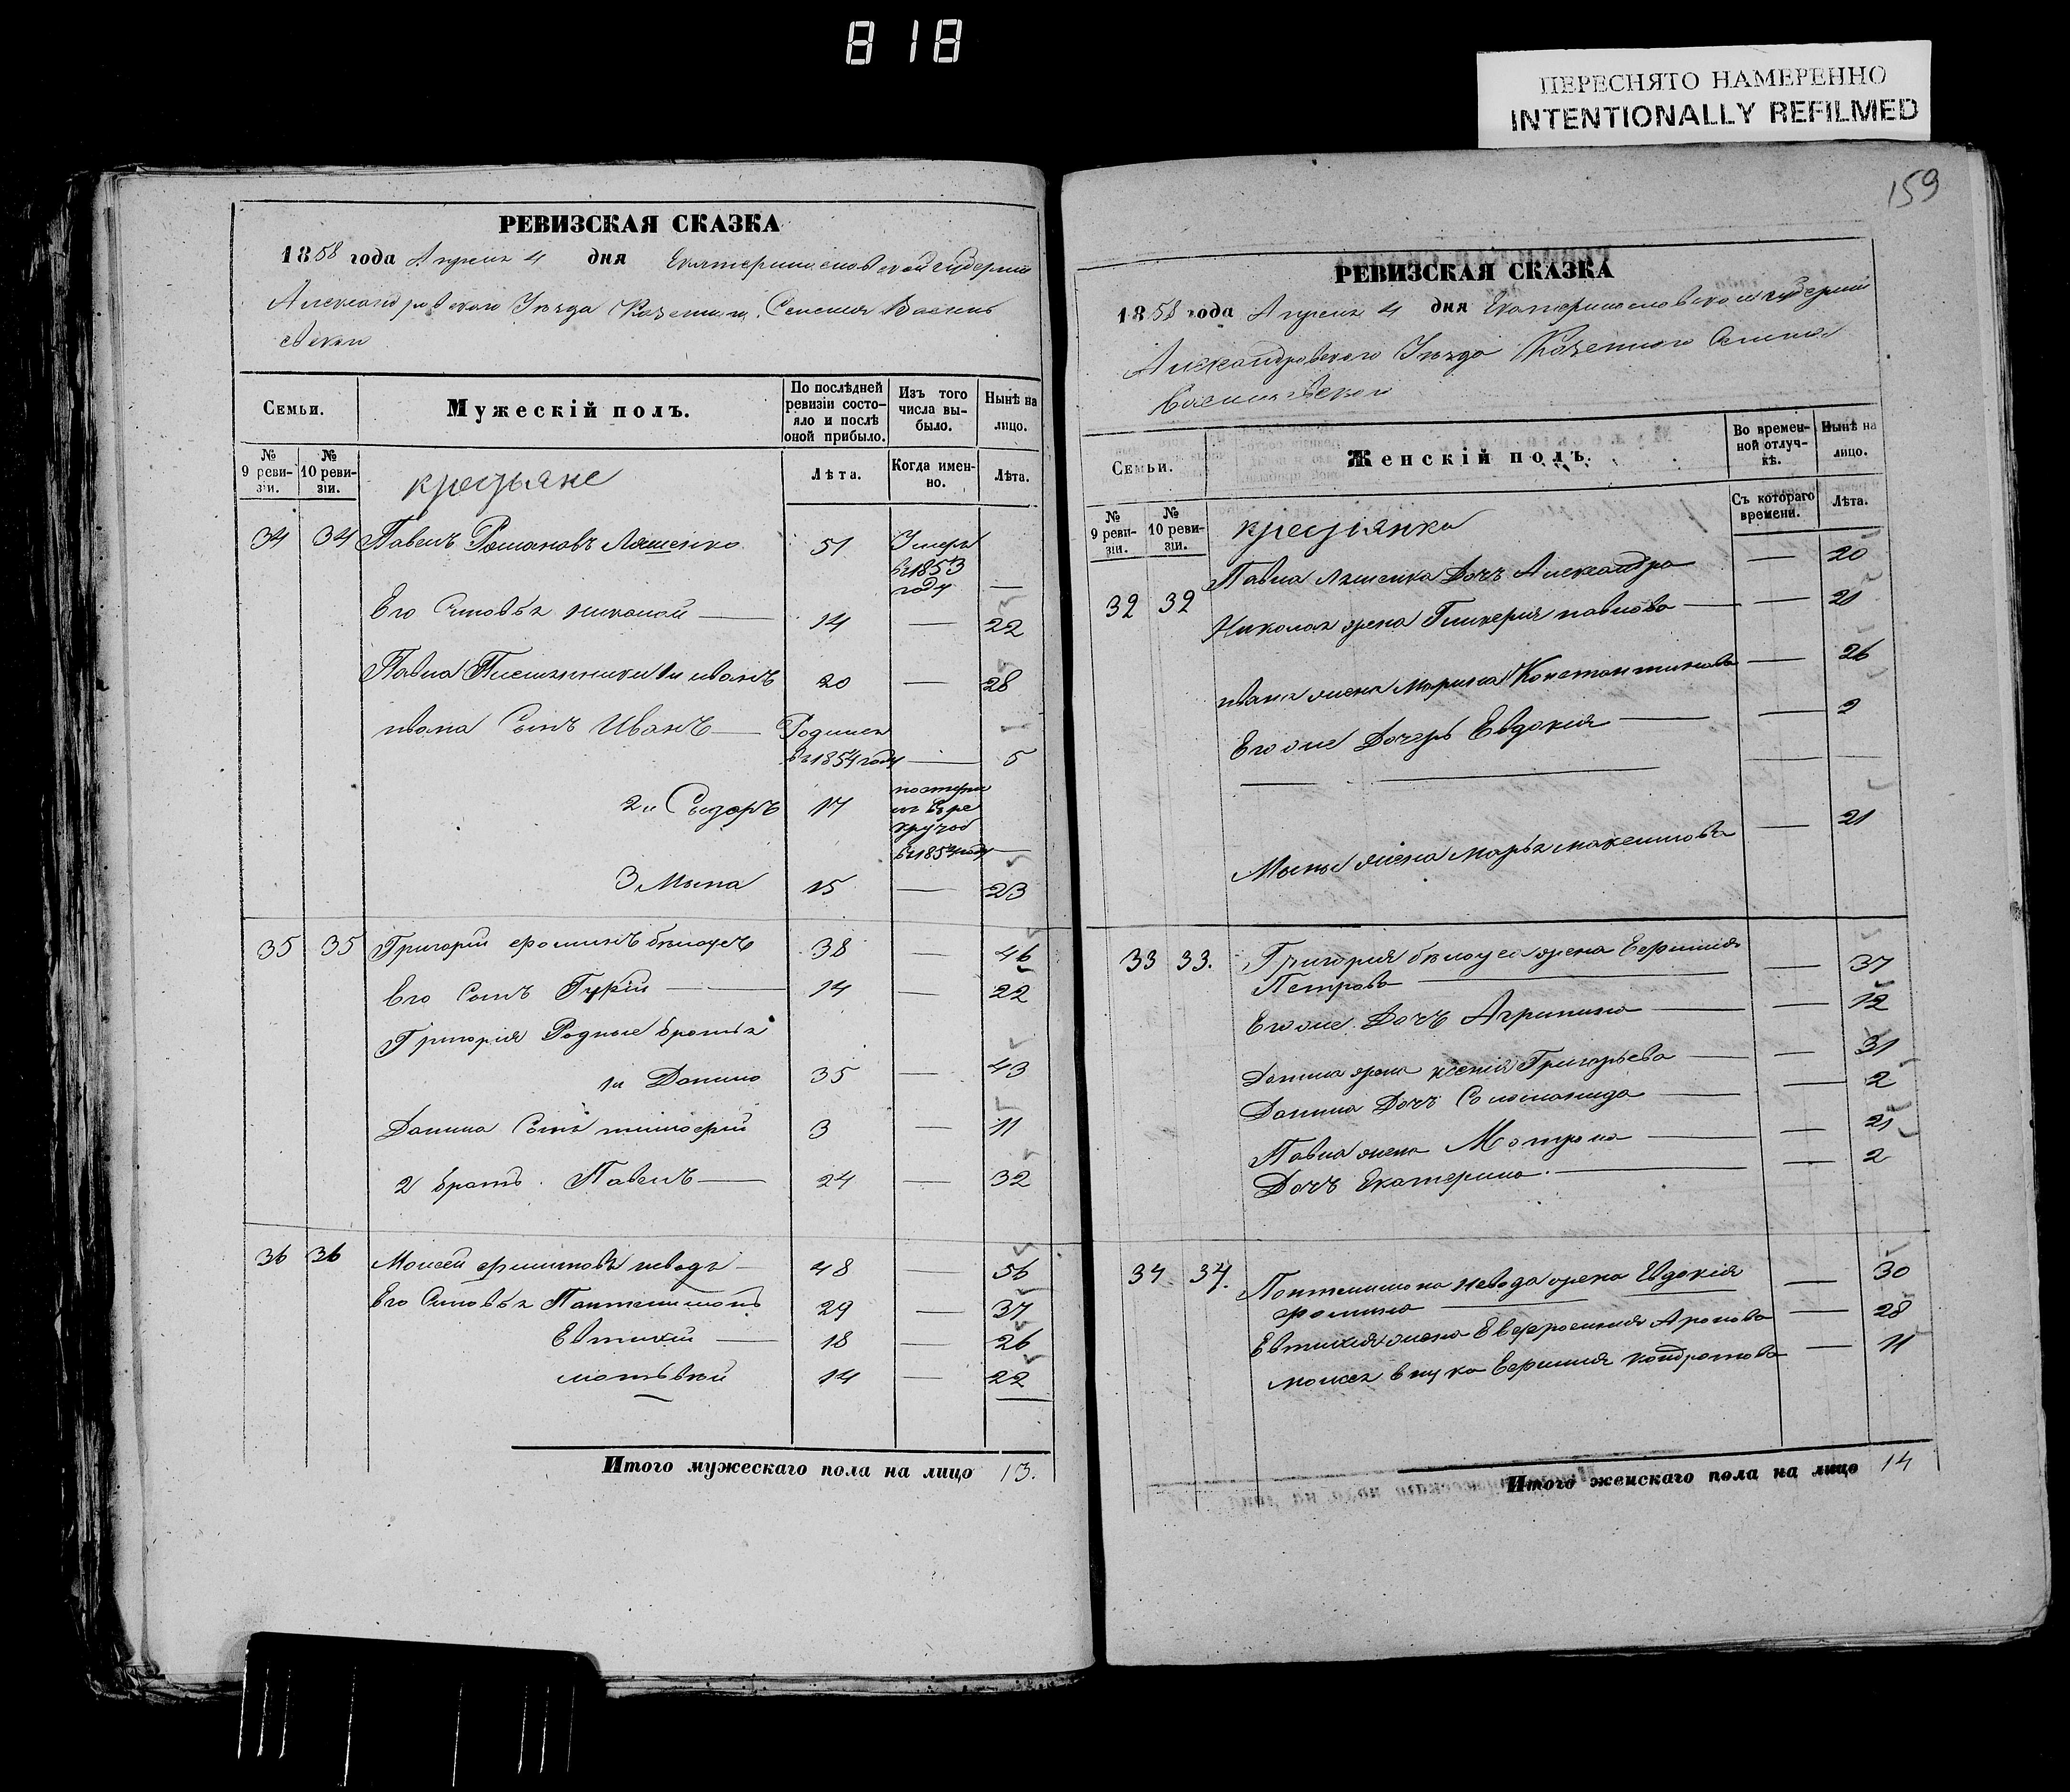 818
ПЕРЕСНЯТО НАМЕРЕННО
INTENTIONALLY REFILMED
РЕВИЗСКАЯ СКАЗКА
1858 года Апреля 4 дня Екатеринославской губернии
Александровского Уезда Казеннаго Селения Василь
евки
Семьи.
Мужескій полъ.
По послѣдней ревизіи состояло и послѣ оной прибыло.
Изъ того числа выбыло.
Нынѣ на лицо.
№ 9 ревизіи.
№ 10 ревизіи.
крестьяне
Лѣта.
Когда именно.
Лѣта.
34 34 Павелъ Романовъ Ляшенко 51 Умеръ
въ 1853
году —
Его Сыновья николай — 14 — 22
Павла Племянники 1й иванъ 20 — 28
ивана Сынъ Иванъ — Родился
въ 1854 году — 5
2й Сыдоръ 17
въ ре
круты
въ 1854 году —
3 Мына 15 — 23
35 35 Григорій фоминъ белоусъ 38 — 46
Его Сынъ Гукій — 14 — 22
Григорія Родные братья
1й Данило 35 — 43
Данила Сынъ тимофей 3 — 11
2 братъ Павелъ — 24 — 32
36 36 Моисей филиповъ неводъ — 48 — 56
Его Сыновья Пантелимонъ 29 — 37
Евтихій — 18 — 26
матвѣй 14 — 22
Итого мужескаго пола на лицо 13.
159
РЕВИЗСКАЯ СКАЗКА
1858 года Апреля 4 дня Екатеринославской губерніи
Александровского Уезда Казенного Селения
Васильевки
Семьи.
Женскій полъ.
Во временной отлучкѣ.
Нынѣ на лицо.
№ 9 ревизіи.
№ 10 ревизіи.
крестьянки
Съ котораго времени.
Лѣта.
Павла Ляшенка Дочь Александра — 20
32 32 Николая жена Гликерия павлова — — 21
ивана жена Марина Константинова — 26
Его же Дочерь Евдокія — — 2
Мыны жена марья максимова — 21
33 33. Григория белоуса жена Ефимия
Петрова — — 37
Его же Дочь Агрипина — — 12
Данила жена ксения Григорьева — — 31
Данила Дочь Соломанида — — 2
Павла жена Матрона — — 21
Дочь Екатерина — — 2
34 34. Пантелимона Невода жена Евдокія
Фомина — — 30
Евтихия жена Евфросиния Аронова — 28
моисея внука Ефимия кондратова — 11
Итого женскаго пола на лицо 14